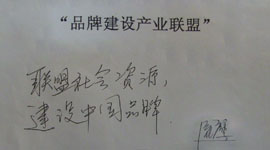 “品牌建设产业联盟”
联盟社会资源,
建设中国品牌.